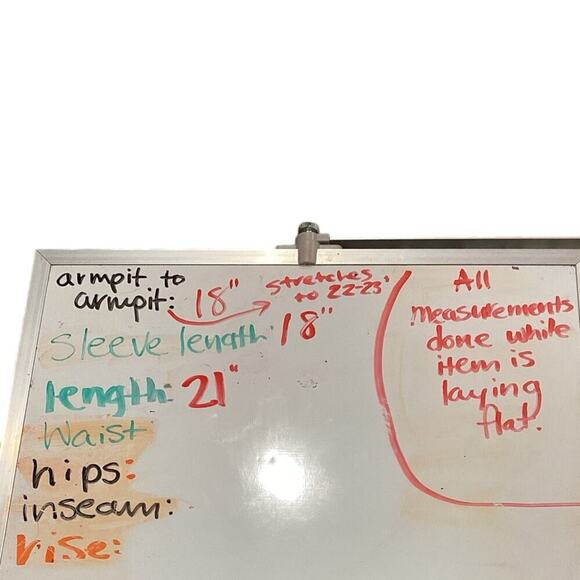 armpit to
armpit: 18"
stretches
to 22-23'
sleeve length: 18"
length: 21"
Waist
hips:
inseam:
rise:
All
measurements
done while
item is
laying
flat.